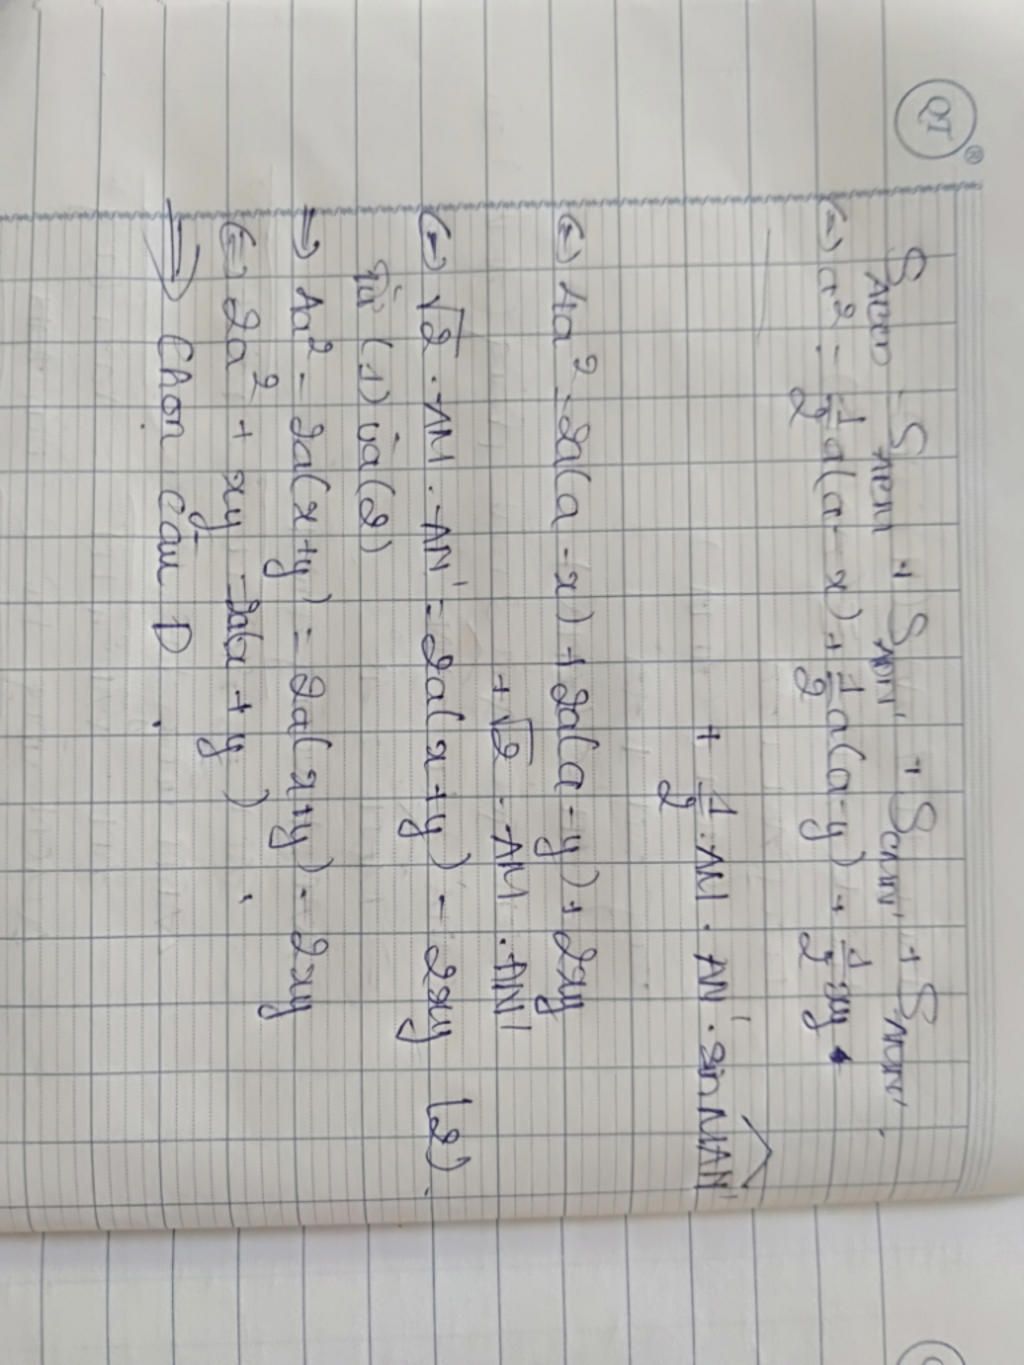 QT ®
S_ABCD = S_ABM + S_ADN' + S_CMN' + S_AMN'.
(=) a² = 1/2 a(a - x) + 1/2 a(a - y) + 1/2 xy
+ 1/2 . AM . AN' . sin MAN'
(=) 4a² = 2a(a - x) + 2a(a - y) + 2xy
+ √2 . AM . AN'
(=) √2 . AM . AN' = 2a(x + y) - 2xy (2).
Từ (1) và (2)
=) 4a² - 2a(x + y) = 2a(x + y) - 2xy
(=) 2a² + xy = 2a(x + y).
⟹ Chọn câu D.